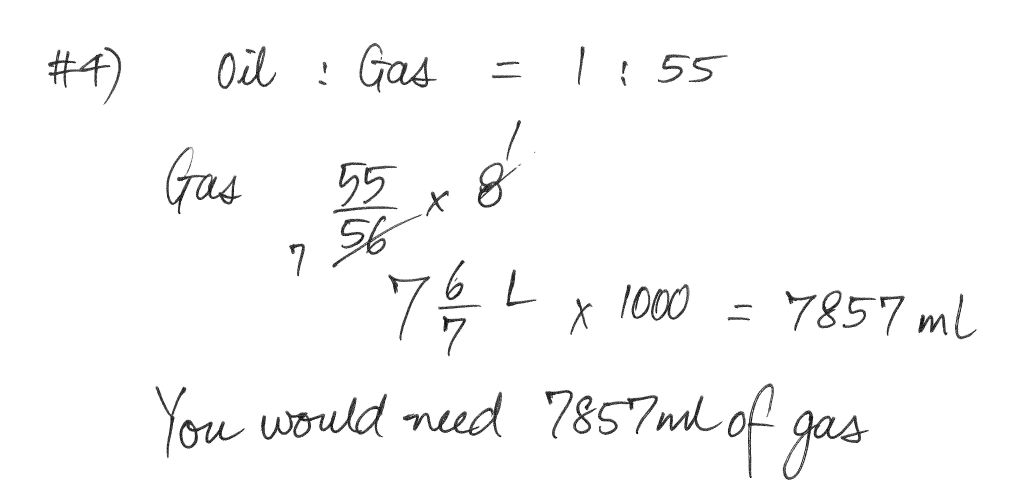 #4) Oil : Gas = 1 : 55
Gas 55/56 × 8 1
7
7 6/7 L × 1000 = 7857 ml
You would need 7857ml of gas